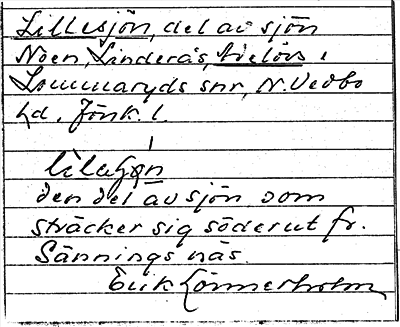 Lillesjön, del av sjön
Noen, Linderås, Adelövs,
Lommaryds snr, N. Vedbo
hd. Jönk. l.
lìlaʃøn
den del av sjön som
sträcker sig söderut fr.
Sännings näs.
Erik Lönnerholm